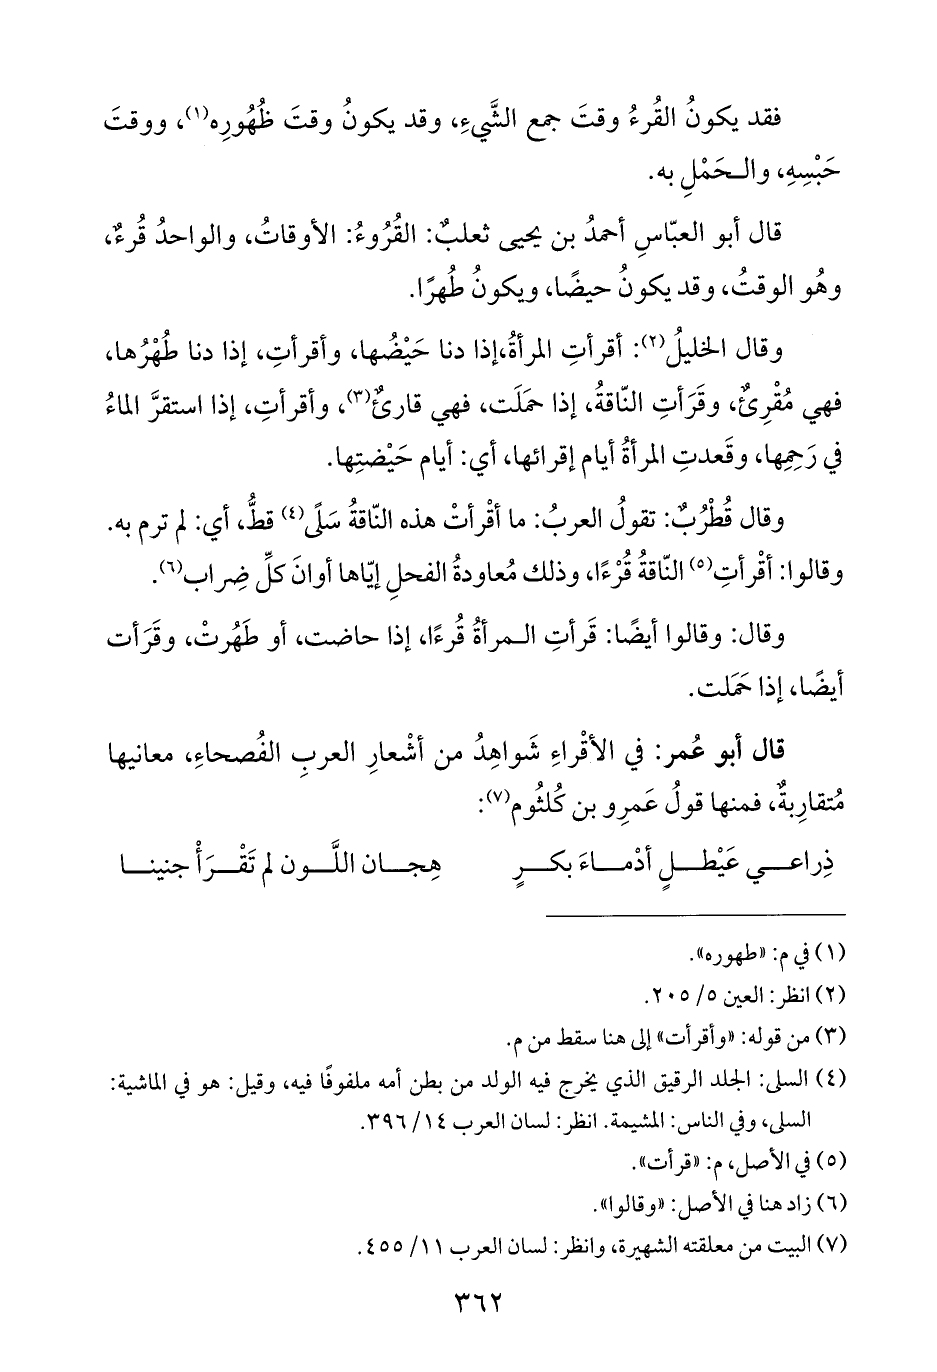 فقد يكونُ القُرءُ وقتَ جمع الشَّيءِ، وقد يكونُ وقتَ ظُهُورِه(١)، ووقتَ
حَبْسِهِ، والـحَمْلِ به.
قال أبو العبّاسِ أحمدُ بن يحيى ثعلبٌ: القُرُوءُ: الأوقاتُ، والواحدُ قُرءٌ،
وهُو الوقتُ، وقد يكونُ حيضًا، ويكونُ طُهرًا.
وقال الخليلُ(٢): أقرأتِ المرأةُ،إذا دنا حَيْضُها، وأقرأتِ، إذا دنا طُهْرُها،
فهي مُقْرِئٌ، وقَرَأتِ النّاقةُ، إذا حَمَلَت، فهي قارئٌ(٣)، وأقرأتِ، إذا استقرَّ الماءُ
في رَحِمِها، وقَعدتِ المرأةُ أيام إقرائها، أي: أيام حَيْضتِها.
وقال قُطْرُبٌ: تقولُ العربُ: ما أقْرأتْ هذه النّاقةُ سَلًى(٤) قطُّ، أي: لم ترم به.
وقالوا: أقْرأتِ(٥) النّاقةُ قُرْءًا، وذلك مُعاودةُ الفحلِ إيّاها أوانَ كلِّ ضِراب(٦).
وقال: وقالوا أيضًا: قَرأتِ الـمرأةُ قُرءًا، إذا حاضت، أو طَهُرتْ، وقَرَأت
أيضًا، إذا حَمَلت.
قال أبو عُمر: في الأقْراءِ شَواهِدُ من أشْعارِ العربِ الفُصحاءِ، معانيها
مُتقارِبةٌ، فمنها قولُ عَمرِو بن كُلثُوم(٧):
ذِراعـــي عَيْطـــلٍ أدْمـــاءَ بكـــرٍ هِجـــان اللَّـــون لم تَقْـــرَأْ جنينـــا
(١) في م: «طهوره».
(٢) انظر: العين ٥/ ٢٠٥.
(٣) من قوله: «وأقرأت» إلى هنا سقط من م.
(٤) السلى: الجلد الرقيق الذي يخرج فيه الولد من بطن أمه ملفوفًا فيه، وقيل: هو في الماشية:
السلى، وفي الناس: المشيمة. انظر: لسان العرب ١٤/ ٣٩٦.
(٥) في الأصل، م: «قرأت».
(٦) زاد هنا في الأصل: «وقالوا».
(٧) البيت من معلقته الشهيرة، وانظر: لسان العرب ١١/ ٤٥٥.
٣٦٢